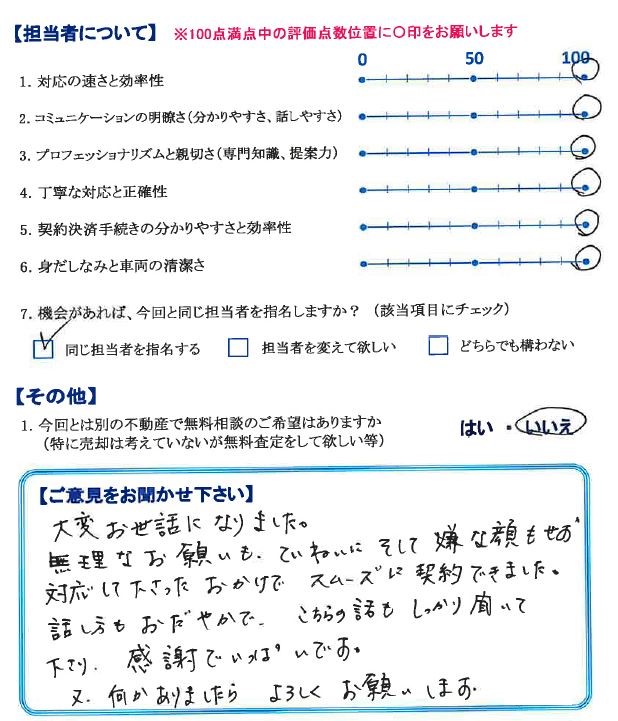 【担当者について】 ※100点満点中の評価点数位置に〇印をお願いします
0 50 100
1. 対応の速さと効率性
2. コミュニケーションの明瞭さ(分かりやすさ、話しやすさ)
3. プロフェッショナリズムと親切さ(専門知識、提案力)
4. 丁寧な対応と正確性
5. 契約決済手続きの分かりやすさと効率性
6. 身だしなみと車両の清潔さ
7. 機会があれば、今回と同じ担当者を指名しますか? (該当項目にチェック)
同じ担当者を指名する 担当者を変えて欲しい どちらでも構わない
【その他】
1. 今回とは別の不動産で無料相談のご希望はありますか
(特に売却は考えていないが無料査定をして欲しい等)
はい ・ いいえ
【ご意見をお聞かせ下さい】
大変お世話になりました。
無理なお願いも、ていねいに そして 嫌な顔もせず
対応して下さった おかげで スムーズに 契約できました。
話し方も おだやかで、 こちらの話も しっかり聞いて
下さり、 感謝でいっぱいです。
又、何かありましたら よろしく お願いします。